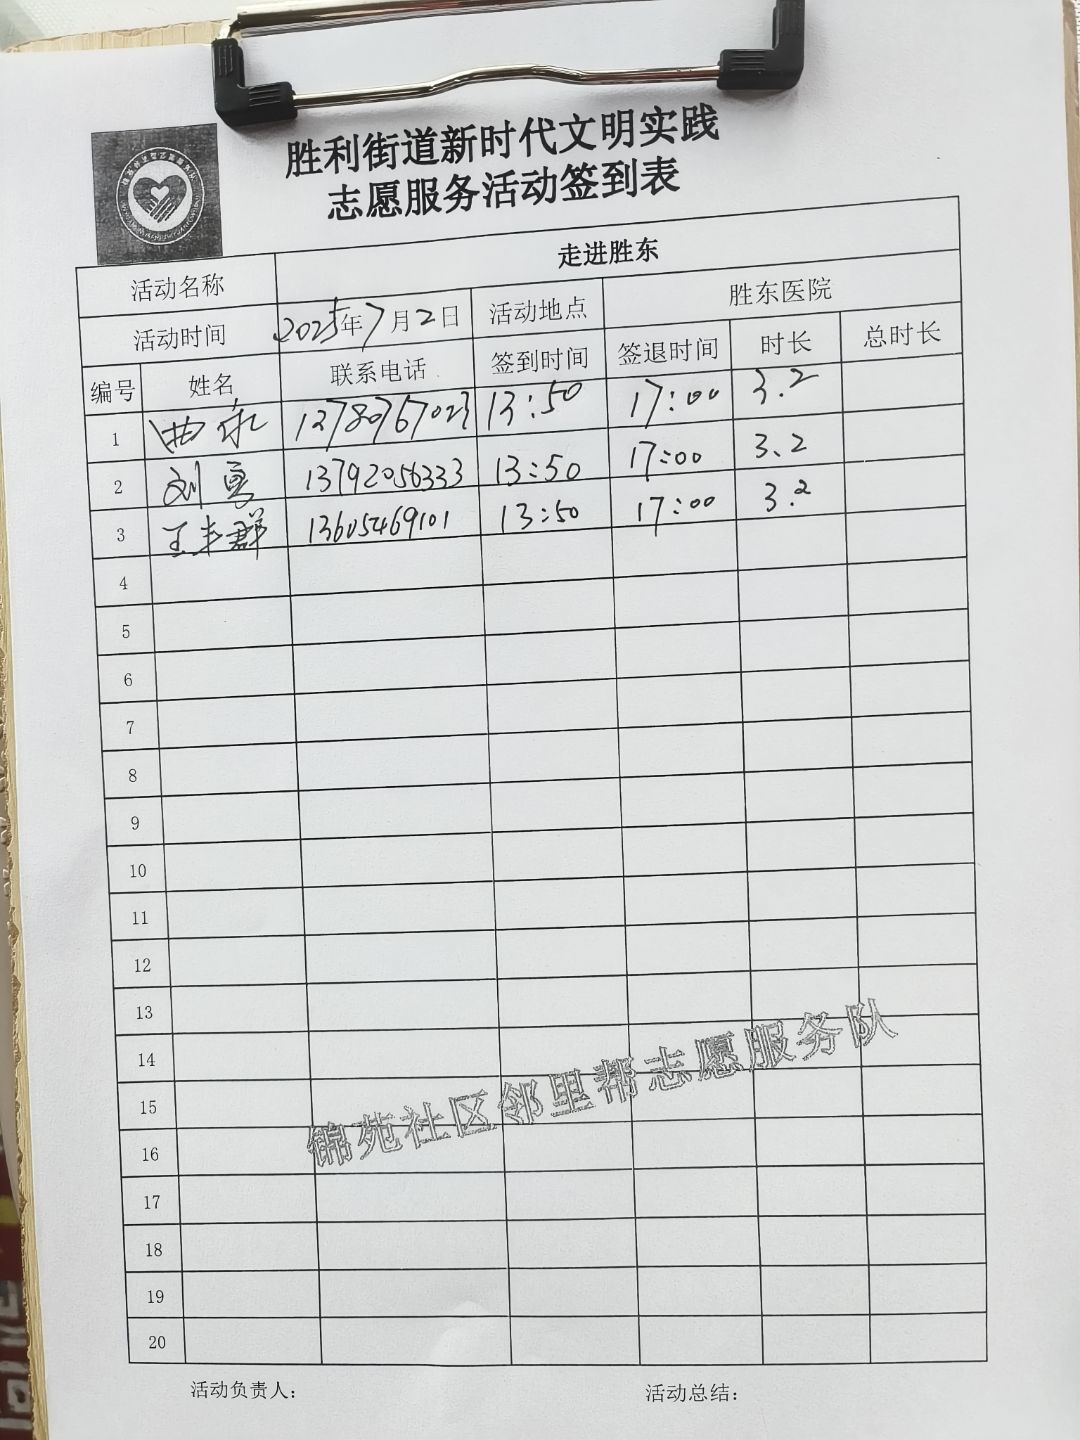 胜利街道新时代文明实践
志愿服务活动签到表
活动名称 走进胜东
活动时间 2025年7月2日 活动地点 胜东医院
编号 姓名 联系电话 签到时间 签退时间 时长 总时长
1 曲 12780767023 13:50 17:00 3.2
2 刘勇 13792056333 13:50 17:00 3.2
3 王丰群 13605469101 13:50 17:00 3.2
4
5
6
7
8
9
10
11
12
13
14
15
16
17
18
19
20
锦苑社区邻里帮志愿服务队
活动负责人： 活动总结：